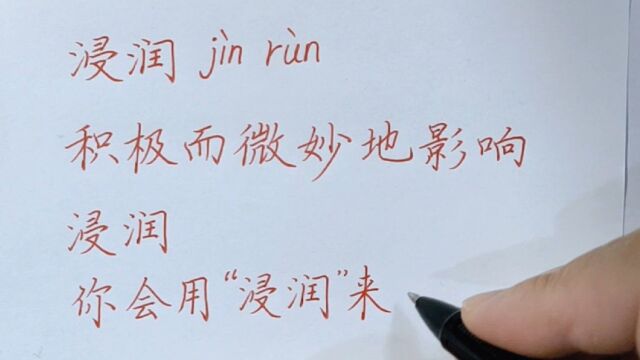 浸润 jìn rùn
积极而微妙地影响
浸润
你会用“浸润”来